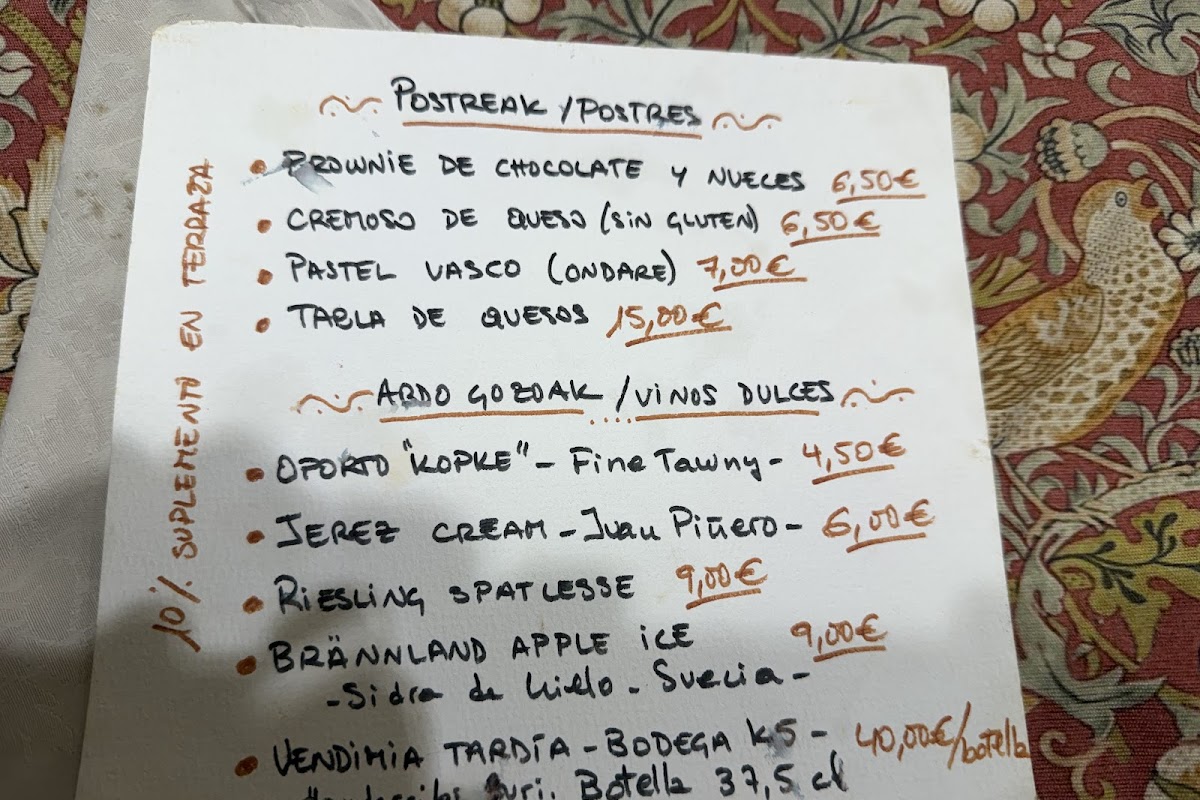 POSTREAK / POSTRES
BROWNIE DE CHOCOLATE Y NUECES 6,50€
CREMOSO DE QUESO (SIN GLUTEN) 6,50€
PASTEL VASCO (ONDARE) 7,00€
TABLA DE QUESOS 15,00€
ARDO GOZOAK / VINOS DULCES
OPORTO "KOPKE" - Fine Tawny - 4,50€
JEREZ CREAM - Juan Piñero - 6,00€
RIESLING SPATLESSE 9,00€
BRÄNNLAND APPLE ICE 9,00€
- Sidra de hielo - Suecia -
VENDIMIA TARDÍA - BODEGA K5 - 40,00€/botella
Botella 37,5 cl
10% SUPLEMENTO EN TERRAZA